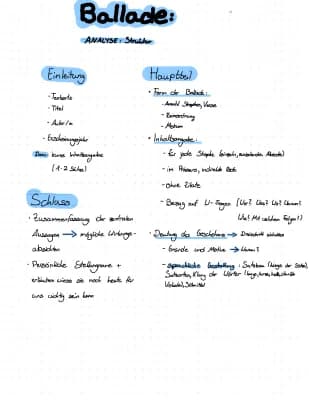 Ballade:
ANALYSE: Struktur
Einleitung
- Textsorte
- Titel
- Autor/in
- Erscheinungsjahr
kurze Inhaltsangabe
(1-2 Sätze)
Schluss
- Zusammenfassung der zentralen
Aussagen → mögliche Wirkungs-
absichten
- Persönliche Stellungnahme +
erläutern wieso sie noch heute für
uns wichtig sein kann
Hauptteil
- Form der Ballade:
- Anzahl Strophen, Verse
- Reimordnung
- Metrum
- Inhaltsangabe:
- für jede Strophe
- in Präsens, indirekte Rede
- ohne Zitate
- Bezug auf W-Fragen (Wer? Was? Wo? Warum?
Wie? Mit welchen Folgen?)
- Deutung des Geschehens →
- Gründe und Motive → Warum?
- sprachliche Gestaltung: Satzbau (Länge der Sätze),
Satzarten, Klang der Wörter
Vokale), Stilmittel